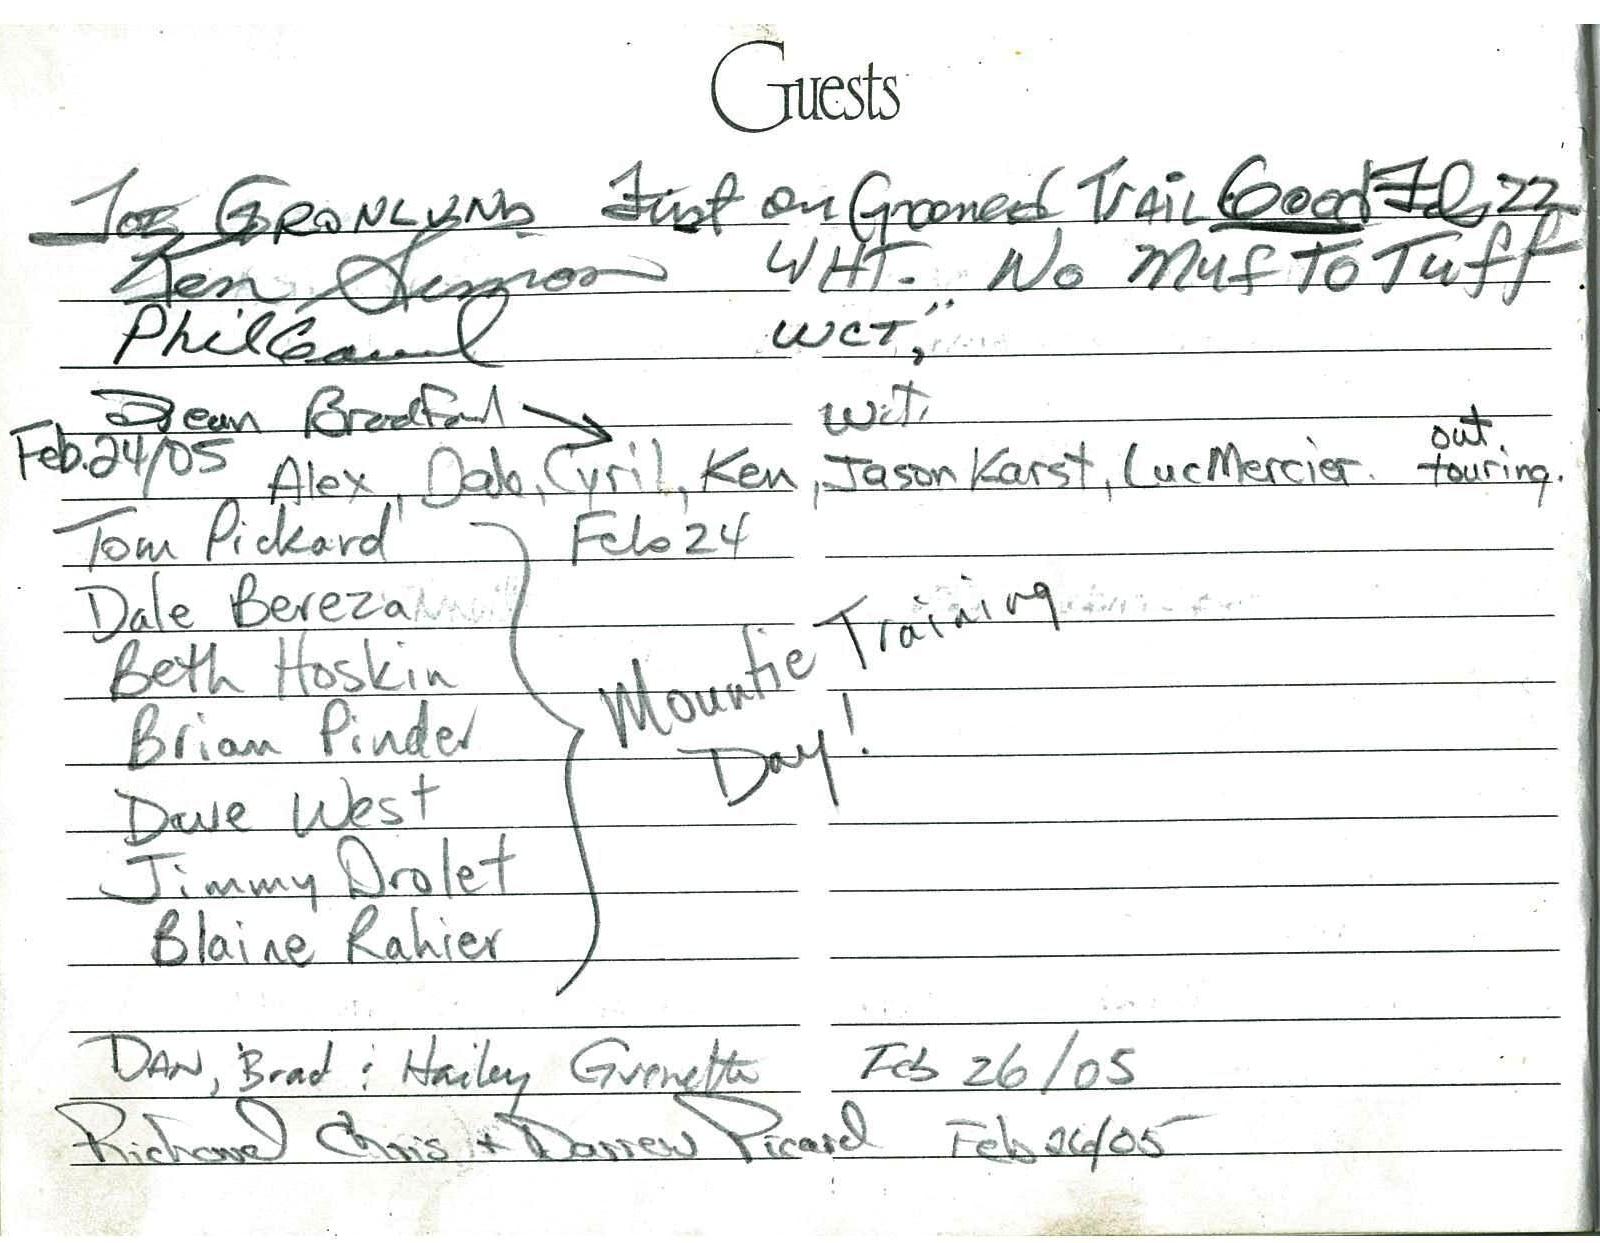 Guests
Joe GRONLUND First on Groomed TRAIL Good Feb 22
Ken WHT. No Muf To Tuff
Phil WCT,"
Dean Bradford → Wct.
Feb.24/05 Alex, Dale, Cyril, Ken, Jason Karst, Luc Mercier. out touring.
Tom Pickard Feb 24
Dale Bereza
Beth Hoskin Mountie Training
Brian Pinder Day!
Dave West
Jimmy Drolet
Blaine Rahier
DAN, Brad & Hailey Feb 26/05
Richard Chris + Darren Picard Feb 26/05